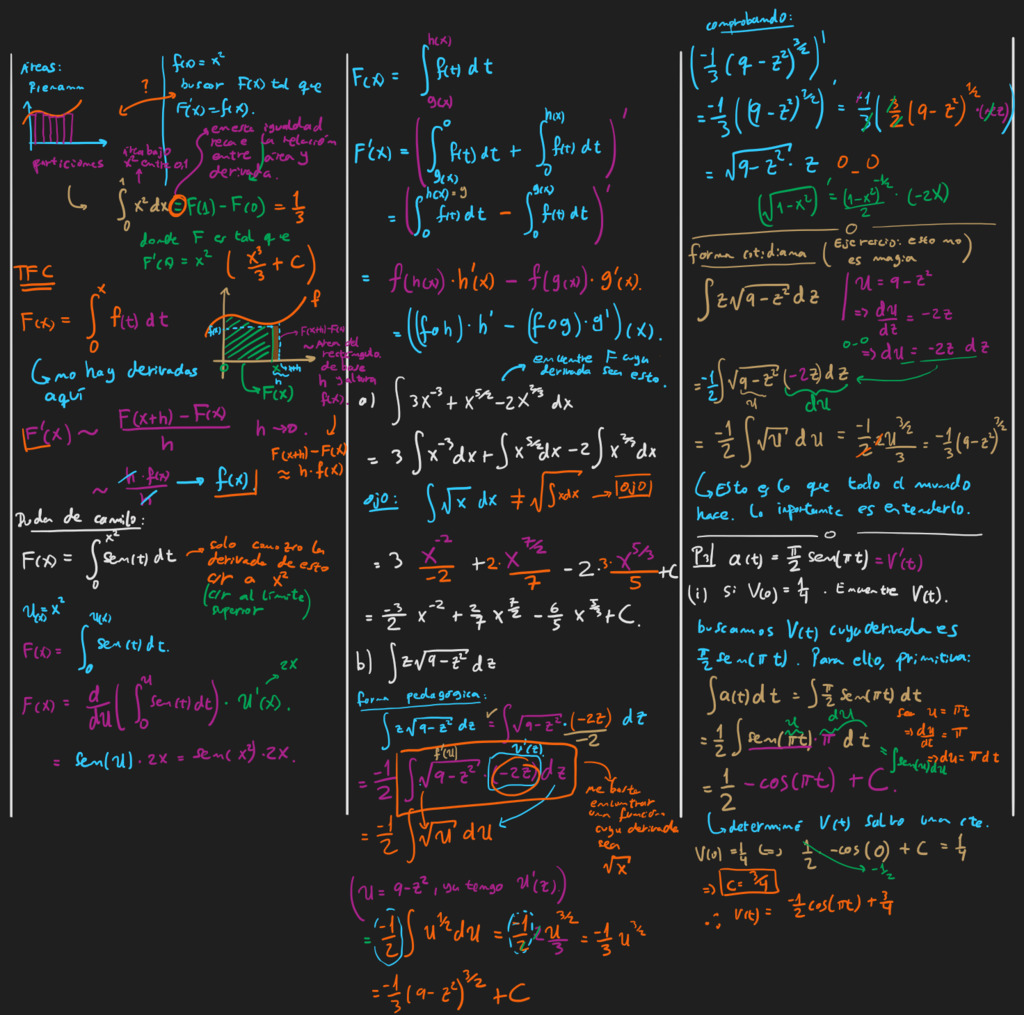 Áreas:
Riemann
particiones
?
f(x) = x²
buscar F(x) tal que
F'(x) = f(x).
en esta igualdad
recae la relación
entre área y
derivada.
área bajo
x² entre 0,1
∫₀¹ x² dx = F(1) - F(0) = 1/3
donde F es tal que
F'(x) = x² (x³/3 + C)
TFC
F(x) = ∫₀ˣ f(t) dt
no hay derivadas
aquí
f
f(x)
0 x x+h
h
F(x)
F(x+h)-F(x)
~ Área del
rectángulo
de base
h y altura
f(x).
F'(x) ~ (F(x+h) - F(x))/h h→0.
F(x+h)-F(x)
≈ h·f(x)
~ h·f(x)/h → f(x)
Duda de camilo:
F(x) = ∫₀^(x²) sen(t) dt
solo conozco la
derivada de esto
c/r a x²
(c/r al límite
superior)
u(x) = x²
F(x) = ∫₀^(u(x)) sen(t) dt.
2x
F(x) = d/du (∫₀ᵘ sen(t) dt) · u'(x).
= sen(u) · 2x = sen(x²) · 2x.
F(x) = ∫_(g(x))^(h(x)) f(t) dt
F'(x) = (∫_(g(x))^0 f(t) dt + ∫₀^(h(x)) f(t) dt)'
= (∫₀^(h(x)=y) f(t) dt - ∫₀^(g(x)) f(t) dt)'
= f(h(x))·h'(x) - f(g(x))·g'(x).
= ((f∘h)·h' - (f∘g)·g')(x).
encuentre F cuya
derivada sea esto.
a) ∫ 3x⁻³ + x^(5/2) - 2x^(2/3) dx
= 3∫x⁻³dx + ∫x^(5/2)dx - 2∫x^(2/3)dx
ojo: ∫√x dx ≠ √∫xdx → ojo
= 3 x⁻²/-2 + 2·x^(7/2)/7 - 2·3·x^(5/3)/5 + C
= -3/2 x⁻² + 2/7 x^(7/2) - 6/5 x^(5/3) + C.
b) ∫ z√(9-z²) dz
forma pedagógica:
∫ z√(9-z²) dz = ∫√(9-z²) · (-2z)/-2 dz
f'(u) u'(z)
= -1/2 ∫√(9-z²) · (-2z) dz
me basta
encontrar
una función
cuya derivada
sea
√x
= -1/2 ∫√u du
(u = 9-z², ya tengo u'(z))
= -1/2 ∫ u^(1/2) du = -1/2 · 2u^(3/2)/3 = -1/3 u^(3/2)
= -1/3 (9-z²)^(3/2) + C
comprobando:
(-1/3 (9-z²)^(3/2))'
= -1/3 ((9-z²)^(3/2))' = -1/3 (3/2 (9-z²)^(1/2) · (-2z))
= √(9-z²) · z 0_0
(√(1-x²))' = (1-x²)^(-1/2)/2 · (-2x)
0
forma cotidiana (Ejercicio: esto no
es magia)
∫ z√(9-z²) dz
u = 9-z²
⇒ du/dz = -2z
0-0
⇒ du = -2z dz
= -1/2 ∫√(9-z²) (-2z) dz
u du
= -1/2 ∫√u du = -1/2 · 2u^(3/2)/3 = -1/3 (9-z²)^(3/2)
Esto es lo que todo el mundo
hace. Lo importante es entenderlo.
0
P3| a(t) = π/2 sen(πt) = V'(t)
(i) Si V(0) = 1/4. Encuentre V(t).
buscamos V(t) cuya derivada es
π/2 sen(πt). Para ello, primitiva:
∫a(t) dt = ∫ π/2 sen(πt) dt
u du
sea u = πt
= 1/2 ∫ sen(πt)·π dt
⇒ du/dt = π
⇒ du = π dt
= ∫sen(u)du
= 1/2 - cos(πt) + C.
determiné V(t) salvo una cte.
V(0) = 1/4 ⟺ 1/2 - cos(0) + C = 1/4
-1/2
⇒ C = 3/4
∴ V(t) = -1/2 cos(πt) + 3/4